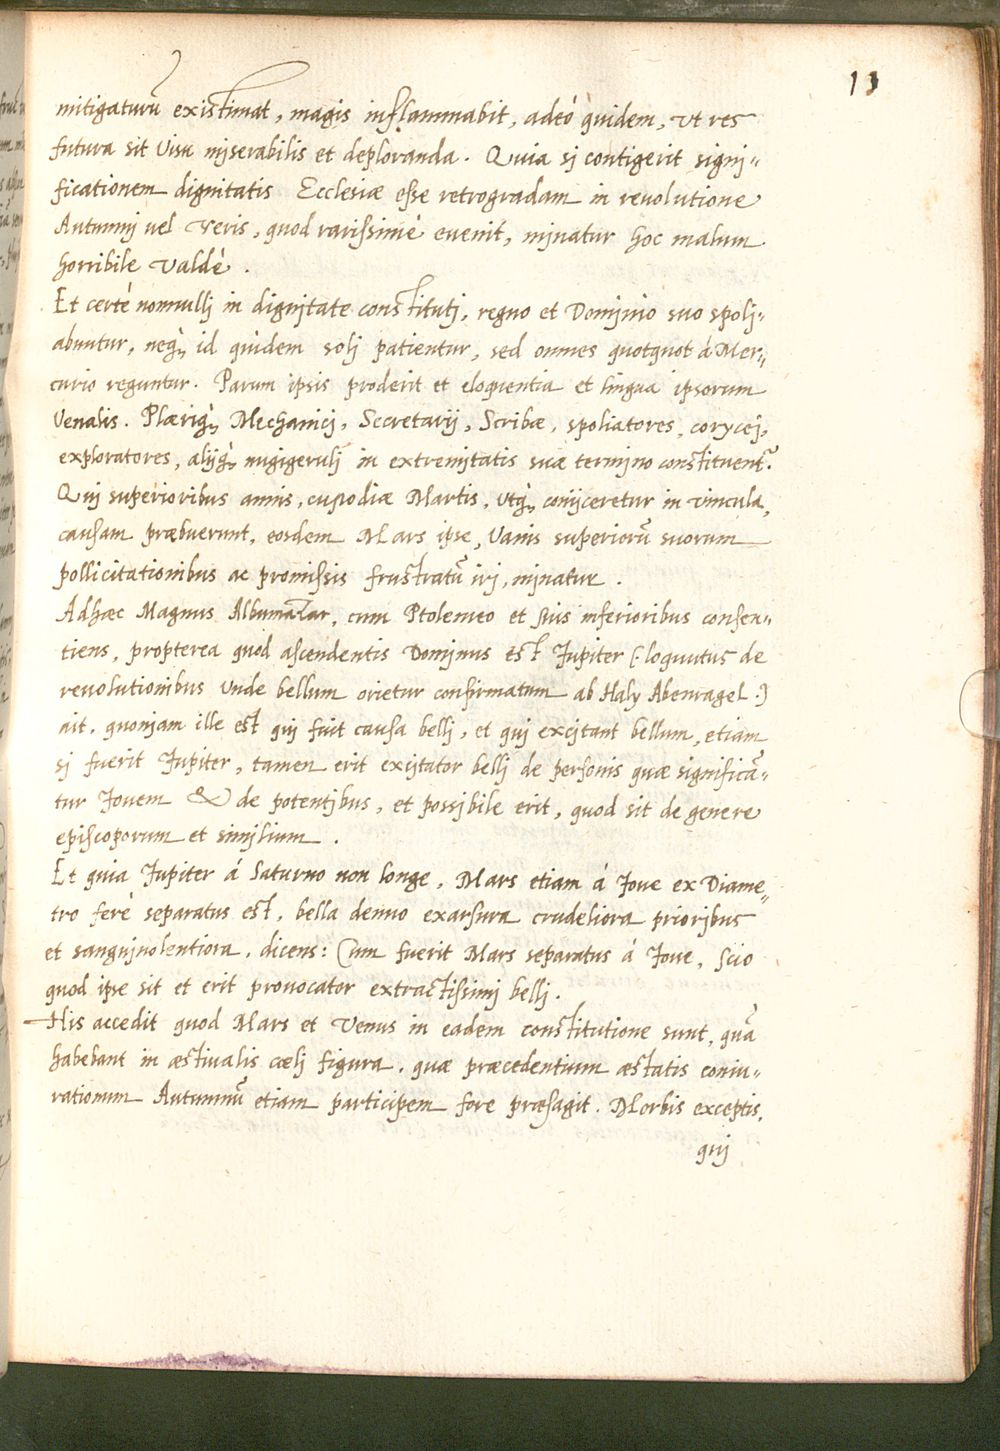 13
mitigaturũ existimat, magis inflammabit, adeó quidem, ut res
futura sit visu miserabilis et deploranda. Quia sj contigerit signi„
ficationem dignitatis Ecclesiæ esse retrogradam in revolutione
Autumnj vel Veris, quod rarissimè evenit, minatur hoc malum
horribile valdè.
Et certè nonnullj in dignitate constitutj, regno et Dominio suo spolj„
abuntur, neq₃ id quidem solj patientur, sed omnes quotquot á Mer„
curio reguntur. Parum ipsis proderit et eloquentia et lingua ipsorum
venalis. Plæriq₃ Mechanicj, Secretarij, Scribæ, spoliatores, corycej,
exploratores, alijq₃ nugigerulj in extremitatis suæ termino constituent.
Quj superioribus annis, custodiæ Martis, utq₃ conijceretur in vincula,
causam præbuerunt, eosdem Mars ipse, vanis superiorũ suorum
pollicitationibus ac promissis frustratũ irj, minatur.
Adhæc Magnus Albumazar, cum Ptolemeo et suis inferioribus consen„
tiens, propterea quod ascendentis Dominus est Jupiter (: loquutus de
revolutionibus unde bellum orietur confirmatum ab Haly Abenragel :)
ait, quoniam ille est quj fuit causa bellj, et quj excitant bellum, etiam
sj fuerit Jupiter, tamen erit excitator bellj de personis quæ significã„
tur Jouem & de potentibus, et possibile erit, quod sit de genere
episcoporum et similium.
Et quia Jupiter á Saturno non longe, Mars etiam á Joue ex Diame„
tro ferè separatus est, bella denuo exarsura crudeliora prioribus
et sanguinolentiora, dicens: Cum fuerit Mars separatus á Joue, Scio
quod ipse sit et erit provocator extractissimj bellj.
His accedit quod Mars et Venus in eadem constitutione sunt, quã
habebant in æstivalis cælj figura, quæ præcedentium æstatis coniu„
rationum Autumnũ etiam participem fore præsagit. Morbis exceptis,
quj